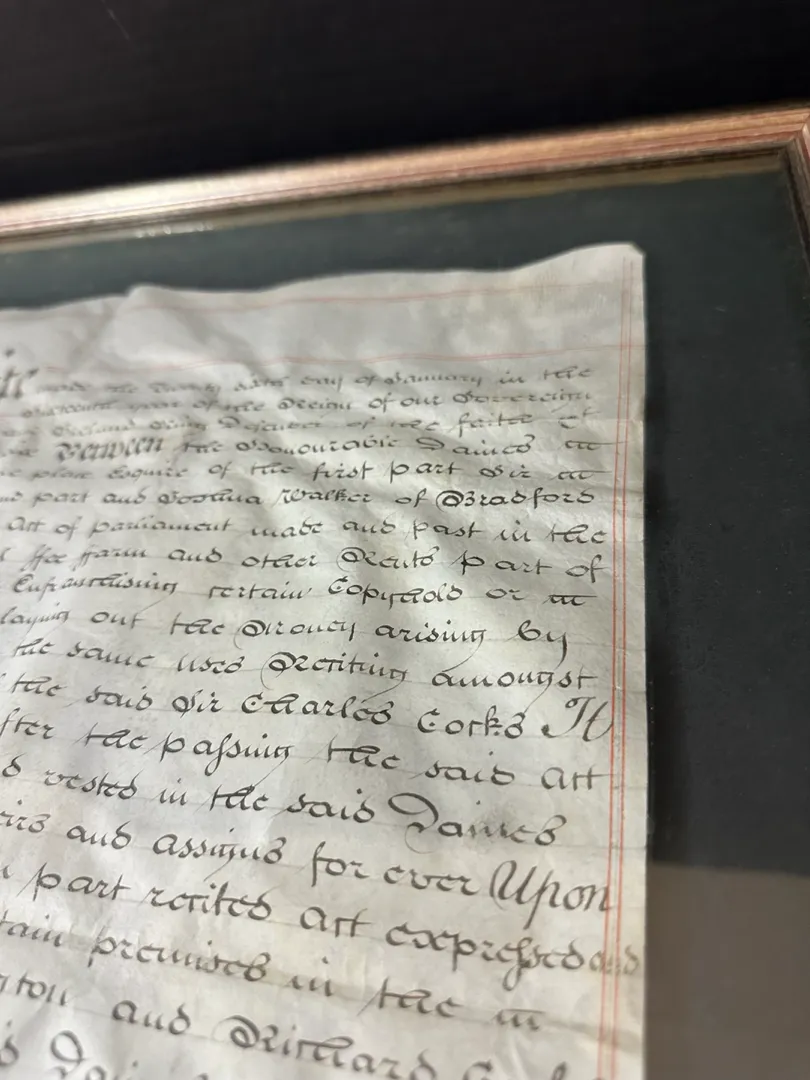 made the Twenty sixth day of January in the
year of the Reign of our Sovereign
Defender of the faith &
Between the Honourable Daines
Esquire of the first part Sir
part and Joshua Walker of Bradford
Act of parliament made and past in the
ffee ffarm and other Rents part of
Enfranchising certain Copyhold or
laying out the Money arising by
the same uses Reciting amongst
the said Sir Charles Cocks It
after the passing the said Act
vested in the said Daines
and assigns for ever Upon
part recited Act expressed and
premises in the
and Richard